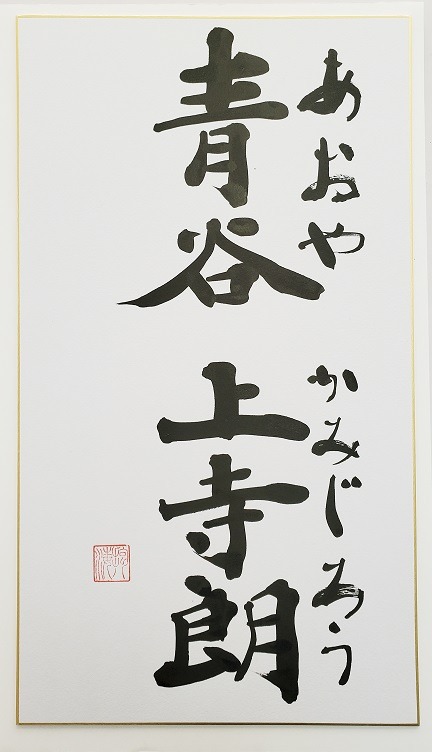 あおや かみじろう
青谷 上寺朗